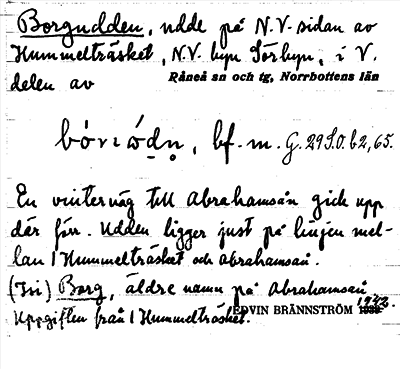 Borgudden, udde på N.V. sidan av
Hummelträsket, N.V. byn Sörbyn, i V.
delen av Råneå sn och tg, Norrbottens län
bf. m. G. 29 S.O. b2, 65.
En vinterväg till Abrahamsån gick upp
där förr. Udden ligger just på linjen mel-
lan 1 Hummelträsket och Abrahamsån.
(Isi) Borg, äldre namn på Abrahamsån
Uppgiften från 1 Hummelträsket. EDVIN BRÄNNSTRÖM 1942.